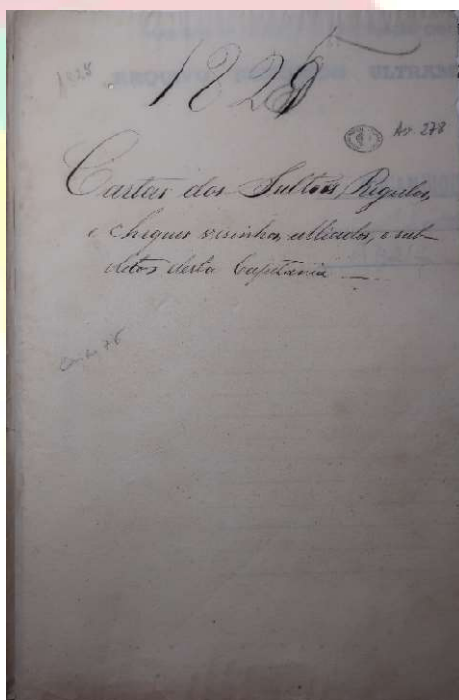 1828
1825
Av. 278
Cartas dos Sultões, Regulos,
e Cheques visinhos, alliados, e sub-
ditos desta Capitania